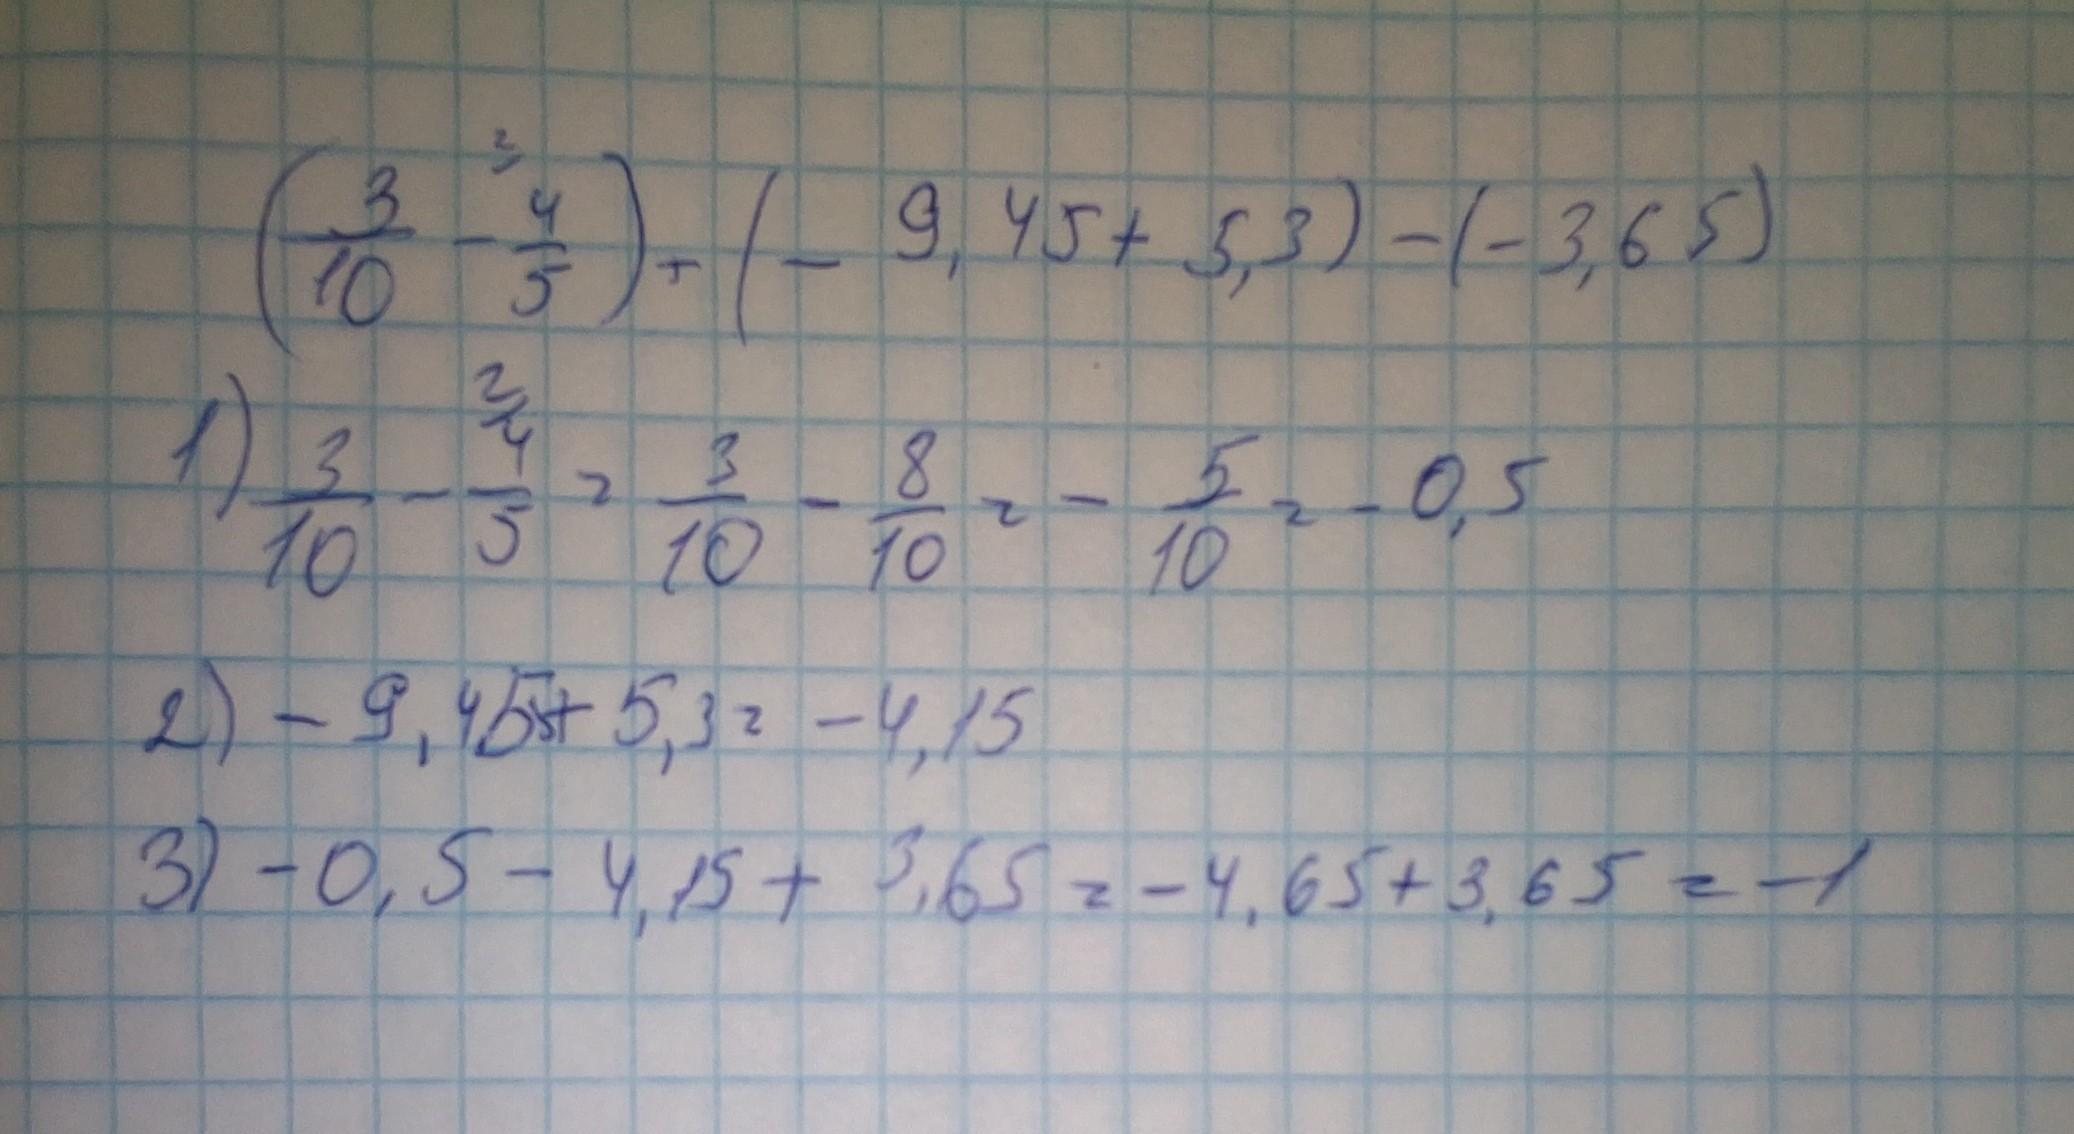 (3/10 - ²⁄ 4/5) + (- 9,45 + 5,3) - (- 3,65)
1) 3/10 - ²⁄ 4/5 = 3/10 - 8/10 = - 5/10 = - 0,5
2) - 9,45 + 5,3 = - 4,15
3) - 0,5 - 4,15 + 3,65 = - 4,65 + 3,65 = - 1